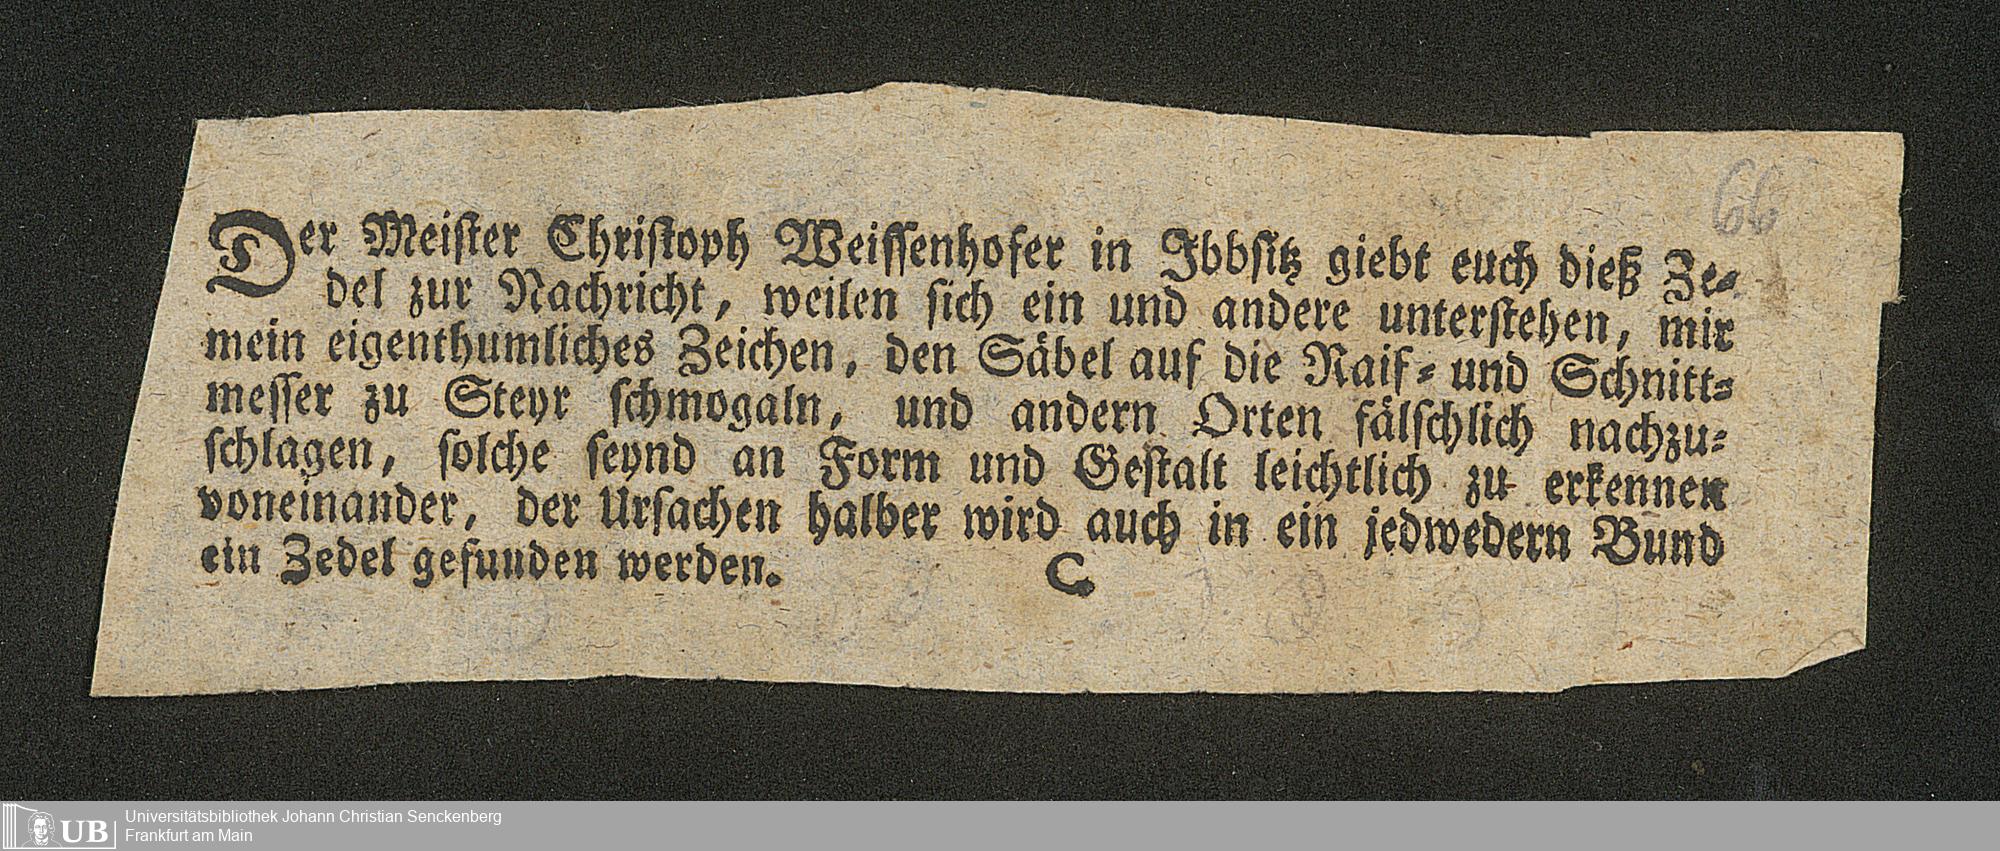 66
Der Meister Christoph Weissenhofer in Ibbsitz giebt euch dieß Ze-
del zur Nachricht, weilen sich ein und andere unterstehen, mir
mein eigenthumliches Zeichen, den Säbel auf die Raif- und Schnitt-
messer zu Steyr schmogaln, und andern Orten fälschlich nachzu-
schlagen, solche seynd an Form und Gestalt leichtlich zu erkennen
voneinander, der Ursachen halber wird auch in ein jedwedern Bund
ein Zedel gefunden werden. C
UB Universitätsbibliothek Johann Christian Senckenberg
Frankfurt am Main